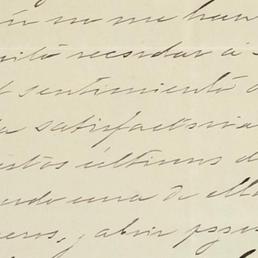 no me han
recordar a
sentimiento
satisfactoria
estos últimos d
una de ella
, y abrir